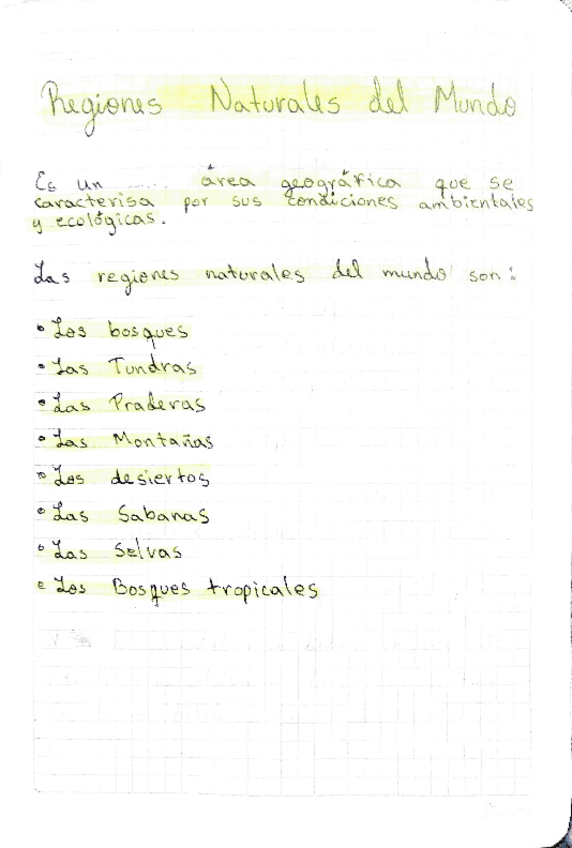 Regiones Naturales del Mundo
Es un ...... área geográfica que se
caracterisa por sus condiciones ambientales
y ecológicas.
Las regiones naturales del mundo son:
• Los bosques
• Las Tundras
• Las Praderas
• Las Montañas
• Los desiertos
• Las Sabanas
• Las Selvas
• Los Bosques tropicales